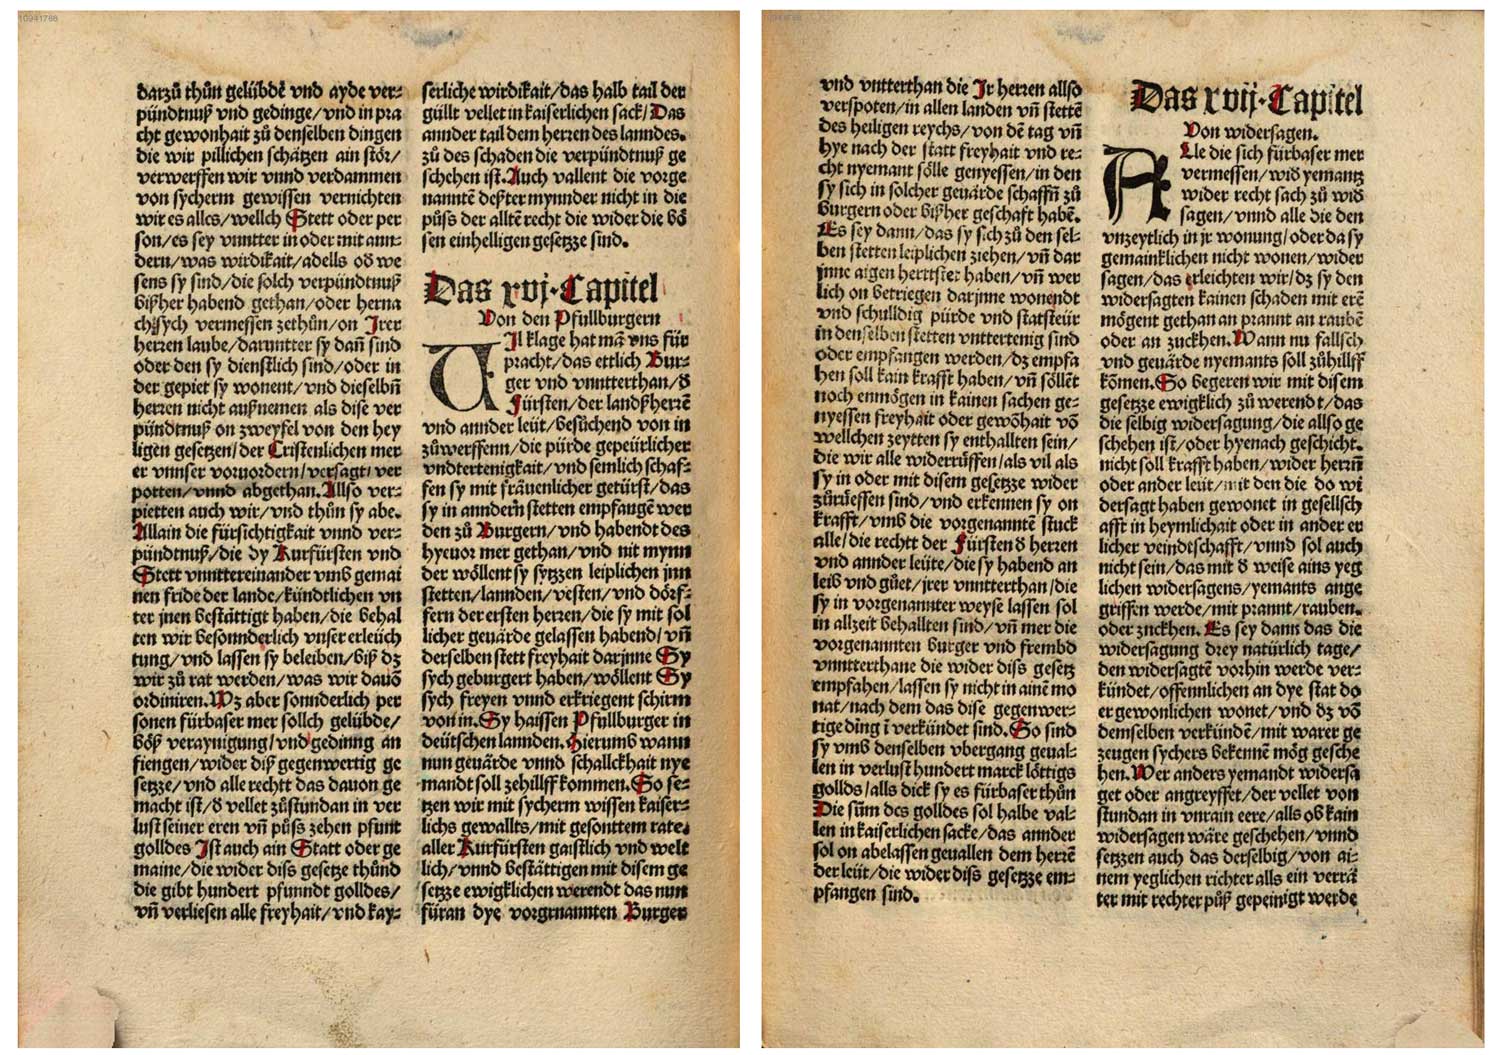 10941768
darzů thůn gelübdē vnd ayde ver-
pündtnuß vnd gedinge/vnd in pra
cht gewonhait zů denselben dingen
die wir pillichen schätzen ain stör/
verwerffen wir vnnd verdammen
von sycherm gewissen vernichten
wir es alles/wellch Stett oder per
son/es sey vnntter in oder mit ann-
dern/was wirdikait/adells od we
sens sy sind/die solch verpündtnuß
bißher habend gethan/oder herna
ch sych vermessen zethůn/on Irer
herren laube/daruntter sy dañ sind
oder den sy dienstlich sind/oder in
der gepiet sy wonent/vnd dieselbñ
herren nicht außnemen als dise ver
pündtnuß on zweyfel von den hey
ligen gesetzen/der Cristenlichen mer
er vnnser voruordern/versagt/ver
potten/vnnd abgethan. Allso ver-
pietten auch wir/vnd thůn sy abe.
Allain die fürsichtigkait vnnd ver-
pündtnuß/die dy Kurfürsten vnd
Stett vnnttereinander vmb gemai
nen fride der lande/kündtlichen vn
ter jnen bestättigt haben/die behal
ten wir besonnderlich vnser erleüch
tung/vnd lassen sy beleiben/biß dz
wir zů rat werden/was wir dauō
ordiniren. Wz aber sonnderlich per
sonen fürbaser mer sollch gelübde/
böß veraynigung/vnd gedinng an
fiengen/wider diß gegenwertig ge
setze/vnd alle rechtt das dauon ge
macht ist/d vellet zůstundan in ver
lust seiner eren vñ půss zehen pfunt
golldes Ist auch ain Statt oder ge
maine/die wider diss gesetze thůnd
die gibt hundert pfunndt golldes/
vñ verliesen alle freyhait/vnd kay-
serliche wirdikait/das halb tail der
güllt vellet in kaiserlichen sack/Das
annder tail dem herren des lanndes.
zů des schaden die verpündtnuß ge
schehen ist. Auch vallent die vorge
nanntē deßter mynnder nicht in die
půss der alltē recht die wider die bö
sen einhelligen gesetzze sind.
Das xvj. Capitel
Von den Pfullburgern
VIl klage hat mā vns für
pracht/das ettlich Bur-
ger vnd vnntterthan/d
Fürsten/der landßherrē
vnd annder leüt/besůchend von in
zůwerffenn/die pürde gepeürlicher
vndtertenigkait/vnd semlich schaf-
fen sy mit fräuenlicher getürst/das
sy in anndern stetten empfangē wer
den zů Burgern/vnd habendt des
hyeuor mer gethan/vnd nit mynn
der wöllent sy sytzzen leiplichen jnn
stetten/lannden/vesten/vnd dörf-
fern der ersten herren/die sy mit sol
licher geuärde gelassen habend/vñ
derselben stett freyhait darjnne Sy
sych geburgert haben/wöllent Sy
sych freyen vnnd erkriegent schirm
von in. Sy haissen Pfullburger in
deütschen lannden. Hierumb wann
nun geuärde vnnd schallckhait nye
mandt soll zehillff kommen. So se-
tzen wir mit sycherm wissen kaiser-
lichs gewallts/mit gesonttem rate/
aller Kurfürsten gaistlich vnd welt
lich/vnnd bestättigen mit disem ge
setzze ewigklichen werendt das nun
füran dye vorgrnannten Burger
vnd vntterthan die Ir herren allso
verspoten/in allen landen vñ stettē
des heiligen reychs/von dē tag vñ
hye nach der statt freyhait vnd re-
cht nyemant sölle genyessen/in den
sy sich in solcher geuärde schaffñ zů
burgern oder bißher geschaft habē.
Es sey dann/das sy sich zů den sel-
ben stetten leiplichen ziehen/vñ dar
jnne aigen herrtster haben/vñ wer
lich on betriegen darjnne wonendt
vnd schulldig pürde vnd statsteür
in denselben stetten vnttertenig sind
oder empfangen werden/dz empfa
hen soll kain krafft haben/vñ söllēt
noch enmögen in kainen sachen ge-
nyessen freyhait oder gewōhait vō
wellchen zeytten sy enthallten sein/
die wir alle widerrüffen/als vil als
sy in oder mit disem gesetzze wider
zůrüeffen sind/vnd erkennen sy on
krafft/vmb die vorgenanntē stuck
alle/die rechtt der Fürsten d herren
vnd annder leüte/die sy habend an
leib vnd gůet/jrer vnntterthan/die
sy in vorgenannter weyse lassen sol
in allzeit behallten sind/vñ mer die
vorgenannten burger vnd frembd
vnntterthane die wider diss gesetz
empfahen/lassen sy nicht in ainē mo
nat/nach dem das dise gegenwer-
tige ding ī verkündet sind. So sind
sy vmb denselben vbergang geual-
len in verlust hundert marck löttigs
gollds/alls dick sy es fürbaser thůn
Die süm des golldes sol halbe val-
len in kaiserlichen sacke/das annder
sol on abelassen geuallen dem herrē
der leüt/die wider diss gesetzze em-
pfangen sind.
Das xvij. Capitel
Von widersagen.
ALle die sich fürbaser mer
vermessen/wid yemantz
wider recht sach zů wid
sagen/vnnd alle die den
vnzeytlich in jr wonung/oder da sy
gemainklichen nicht wonen/wider
sagen/das erleichten wir/dz sy den
widersagten kainen schaden mit erē
mögent gethan an prannt an raubē
oder an zuckhen. Wann nu fallsch
vnd geuärde nyemants soll zůhillff
kōmen. So begeren wir mit disem
gesetzze ewigklich zů werend t/das
die selbig widersagung/die allso ge
schehen ist/oder hyenach geschicht.
nicht soll krafft haben/wider herrñ
oder ander leüt/mit den die do wi
dersagt haben gewonet in gesellsch
afft in heymlichait oder in ander er
licher veindtschafft/vnnd sol auch
nicht sein/das mit d weise ains yeg
lichen widersagens/yemants ange
griffen werde/mit prannt/rauben.
oder znckhen. Es sey dann das die
widersagung drey natürlich tage/
den widersagtē vorhin werde ver-
kündet/offennlichen an dye stat do
er gewonlichen wonet/vnd dz vō
demselben verkündē/mit warer ge
zeugen sychers bekennē mög gesche
hen. Wer anders yemandt widersa
get oder angreyffet/der vellet von
stundan in vnrain eere/alls ob kain
widersagen wäre geschehen/vnnd
setzzen auch das derselbig/von ai-
nem yeglichen richter alls ein verrä
ter mit rechter půß gepeinigt werde